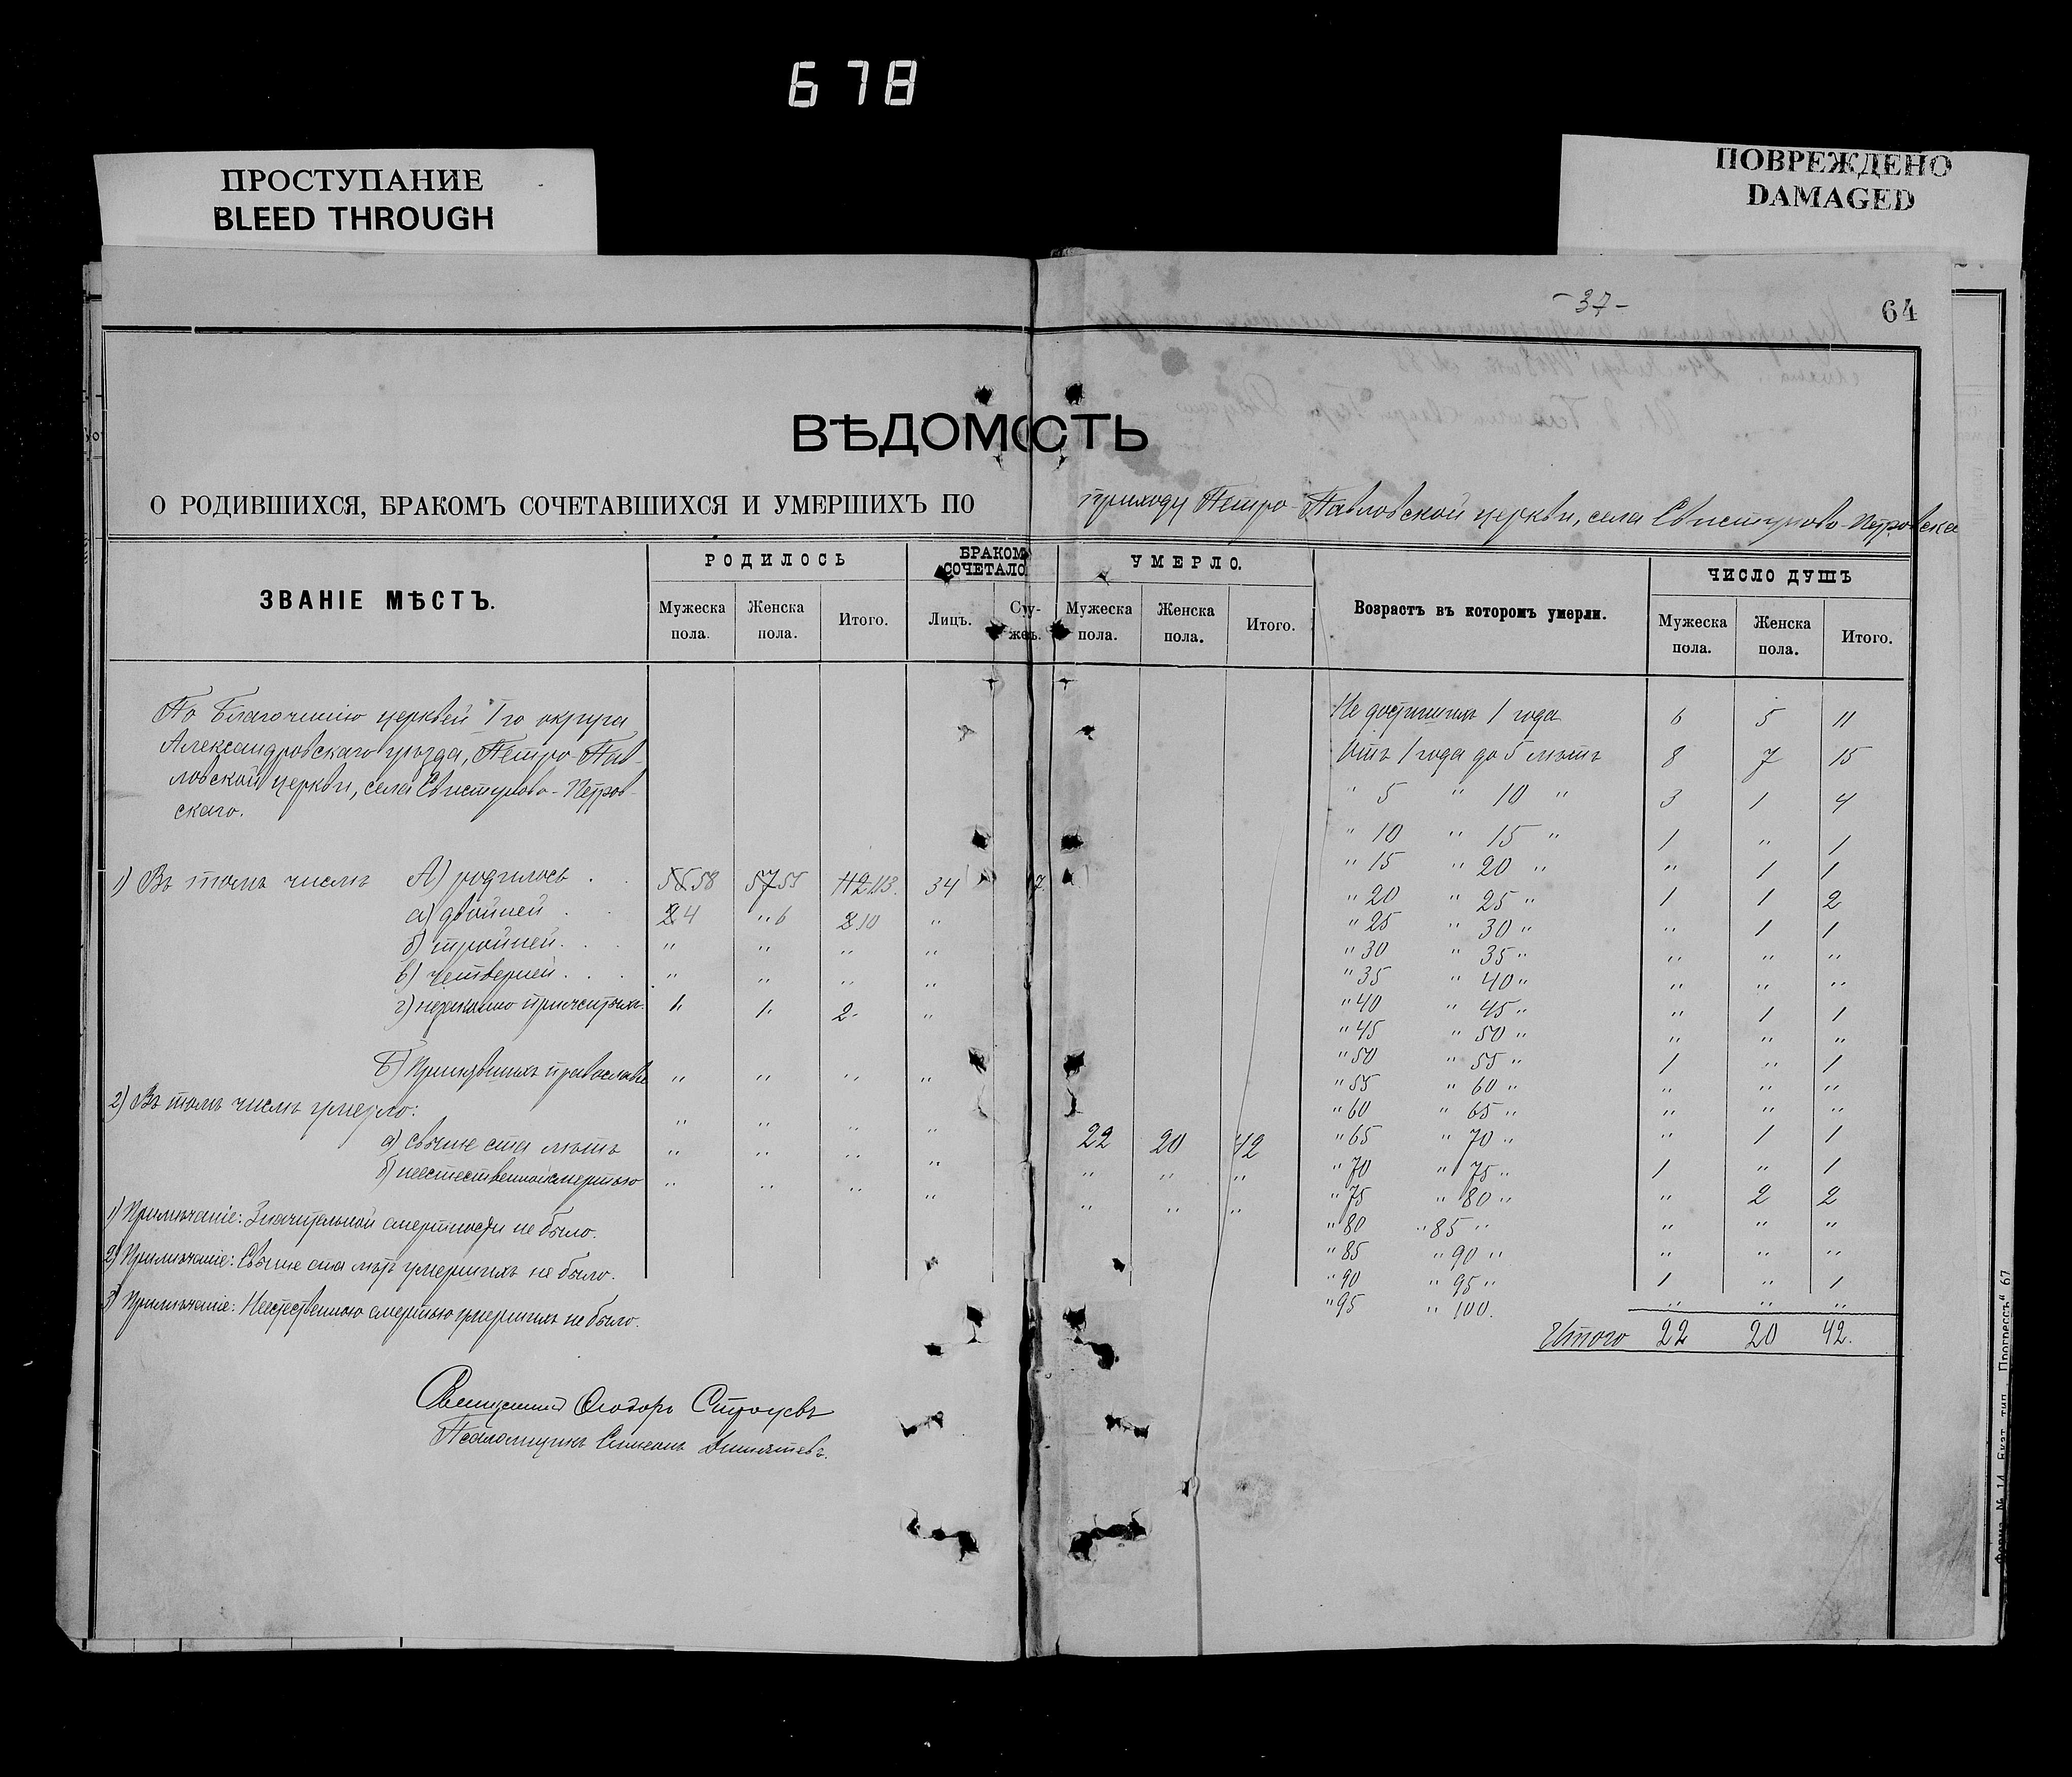 678
ПРОСТУПАНИЕ
BLEED THROUGH
ПОВРЕЖДЕНО
DAMAGED
-37-
64
ВѢДОМОСТЬ
О РОДИВШИХСЯ, БРАКОМЪ СОЧЕТАВШИХСЯ И УМЕРШИХЪ ПО приходу Петро-Павловской церкви, села Свистуново-Петровска
ЗВАНІЕ МѢСТЪ.
РОДИЛОСЬ
Мужеска пола. Женска пола. Итого.
БРАКОМ СОЧЕТАЛО
Лицъ. Суу-жеъ.
УМЕРЛО.
Мужеска пола. Женска пола. Итого.
Возрастъ въ которомъ умерли.
ЧИСЛО ДУШЪ
Мужеска пола. Женска пола. Итого.
По Благочинію церквей 1го округа
Александровскаго уѣзда, Петро-Пав-
ловской церкви, села Свистуново-Петров-
скаго.
1) Въ томъ числѣ А) родилось . . 58 55 112 113. 34 17
а) двойней . . 2 4 " 6 2 10 "
б) тройней . . . " " " "
в) четверней . . . " " " "
г) незаконно прижитыхъ 1" 1" 2" "
Б) Принявшихъ православіе " " " "
2) Въ томъ числѣ умерло: " " " " 22 20 42
а) свыше ста лѣтъ " " " " " " "
б) неестественной смертью " " " " " " "
1) Примѣчаніе: Значительной смертности не было.
2) Примѣчаніе: Свыше ста лѣтъ умершихъ не было.
3) Примѣчаніе: Неестественною смертью умершихъ не было.
Священникъ Ѳеодоръ
Псаломщикъ Симеонъ
Не достигшихъ 1 года 6 5 11
Отъ 1 года до 5 лѣтъ 8 7 15
" 5 " 10 " 3 1 4
" 10 " 15 " 1 " 1
" 15 " 20 " " 1 1
" 20 " 25 " 1 1 2
" 25 " 30 " " 1 1
" 30 " 35 " " " "
" 35 " 40 " " " "
" 40 " 45 " " 1 1
" 45 " 50 " " " "
" 50 " 55 " 1 " 1
" 55 " 60 " " " "
" 60 " 65 " " " "
" 65 " 70 " " 1 1
" 70 " 75 " 1 " 1
" 75 " 80 " " 2 2
" 80 " 85 " " " "
" 85 " 90 " " " "
" 90 " 95 " 1 " 1
" 95 " 100. " " "
Итого 22 20 42.
Форма № 14. Екат. тип. „Прогрессъ" 67